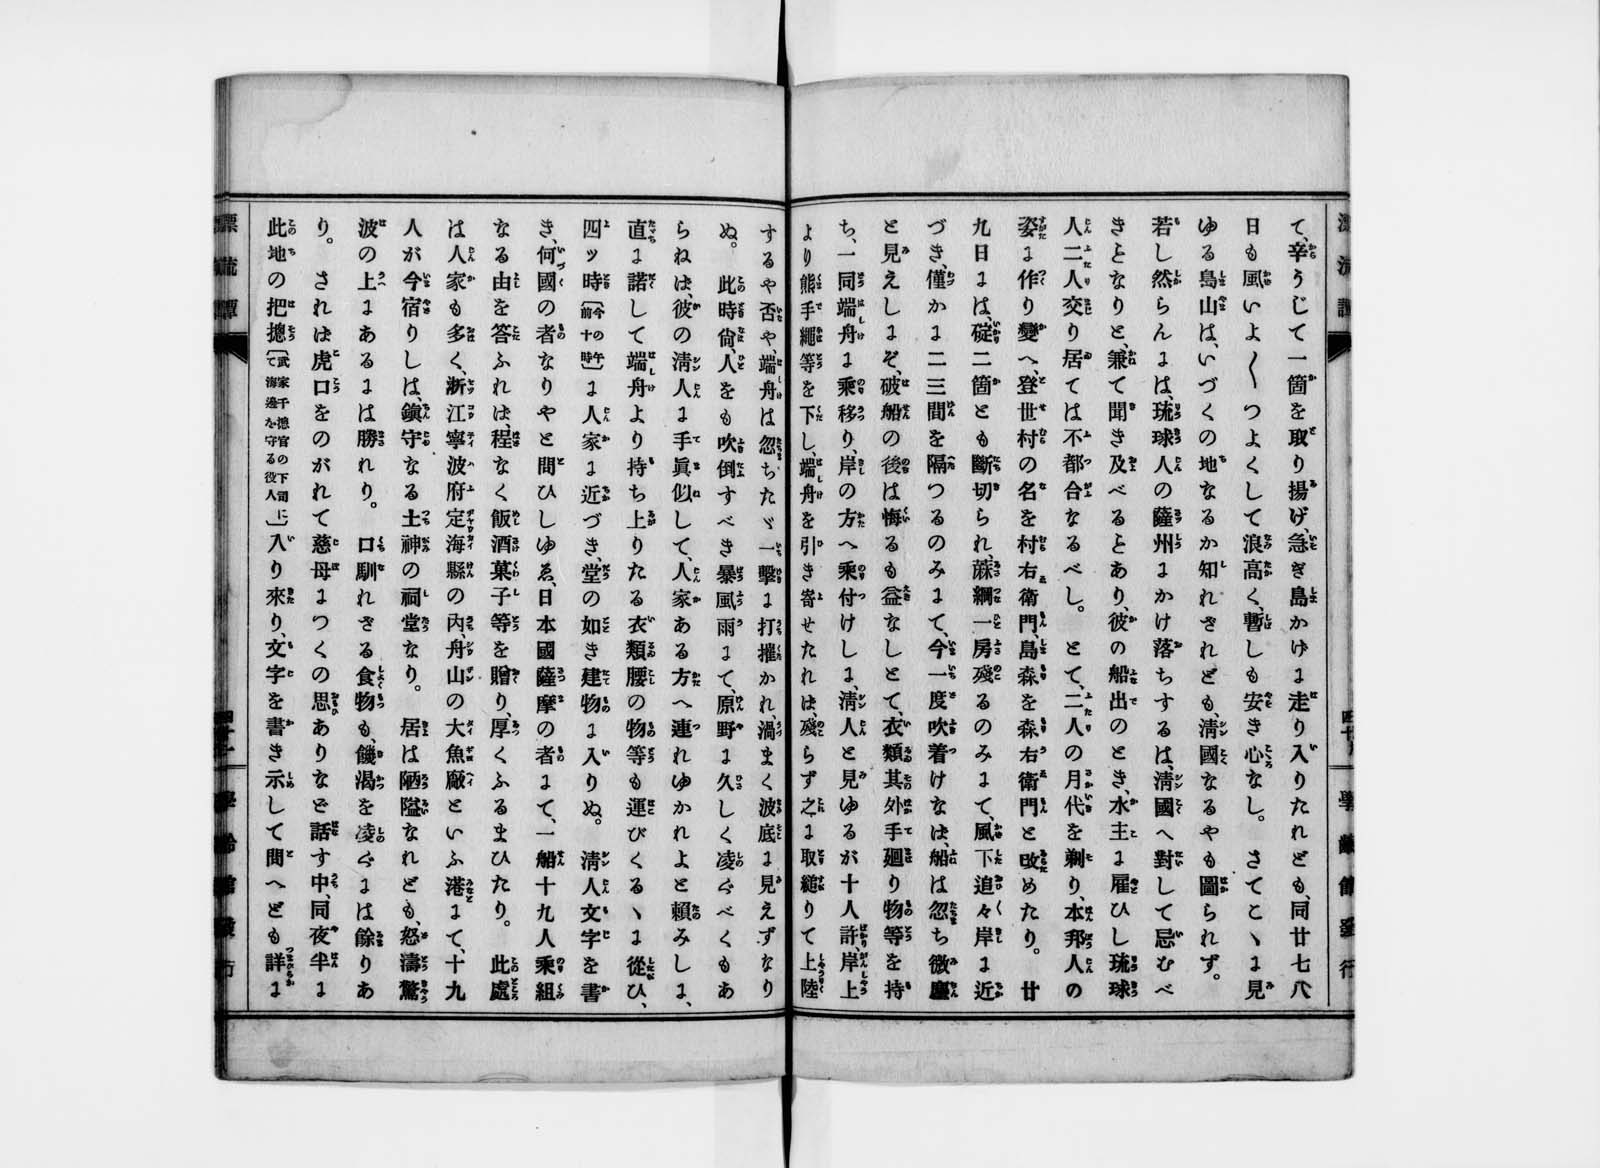 て、辛うじて一箇を取り揚げ、急ぎ島かげに走り入りたれども、同廿七八
日も風いよ〱つよくして浪高く、暫しも安き心なし。さてこゝに見
ゆる島山は、いづくの地なるか知れざれども、淸國なるやも圖られず。
若し然らんには、琉球人の薩州にかけ落ちするは、淸國へ對して忌むべ
きとなりと、兼て聞き及べるとあり、彼の船出のとき、水主に雇ひし琉球
人二人交り居ては不都合なるべし。とて、二人の月代を剃り、本邦人の
姿に作り變へ、登世村の名を村右衛門、島森を森右衛門と改めたり。廿
九日には、碇二箇とも斷切られ、蔴綱一房殘るのみにて、風下追々岸に近
づき、僅かに二三間を隔つるのみにて、今一度吹着けなば、船は忽ち微塵
と見えしにぞ、破船の後は悔るも益なしとて、衣類其外手廻り物等を持
ち、一同端舟に乘移り、岸の方へ乘付けしに、淸人と見ゆるが十人許、岸上
より熊手繩等を下し、端舟を引き寄せたれば、殘らず之に取縋りて上陸
するや否や、端舟は忽ちたゞ一擊に打摧かれ、渦まく波底に見えずなり
ぬ。此時尙、人をも吹倒すべき暴風雨にて、原野に久しく凌ぐべくもあ
らねば、彼の淸人に手眞似して、人家ある方へ連れゆかれよと賴みしに、
直に諾して端舟より持ち上りたる衣類腰の物等も運びくるゝに從ひ、
四ッ時〔今の午前十時〕に人家に近づき、堂の如き建物に入りぬ。淸人文字を書
き、何國の者なりやと問ひしゆゑ、日本國薩摩の者にて、一船十九人乘組
なる由を答ふれば、程なく飯酒菓子等を贈り、厚くふるまひたり。此處
は人家も多く、浙江寧波府定海縣の内、舟山の大魚廠といふ港にて、十九
人が今宿りしは、鎭守なる土神の祠堂なり。居は陋隘なれども、怒濤驚
波の上にあるには勝れり。口馴れざる食物も、饑渇を凌ぐには餘りあ
り。されば虎口をのがれて慈母につくの思ありなど話す中、同夜半に
此地の把摠〔武家千摠官の下司にて海邊を守る役人〕入り來り、文字を書き示して問へども詳に
漂流譚